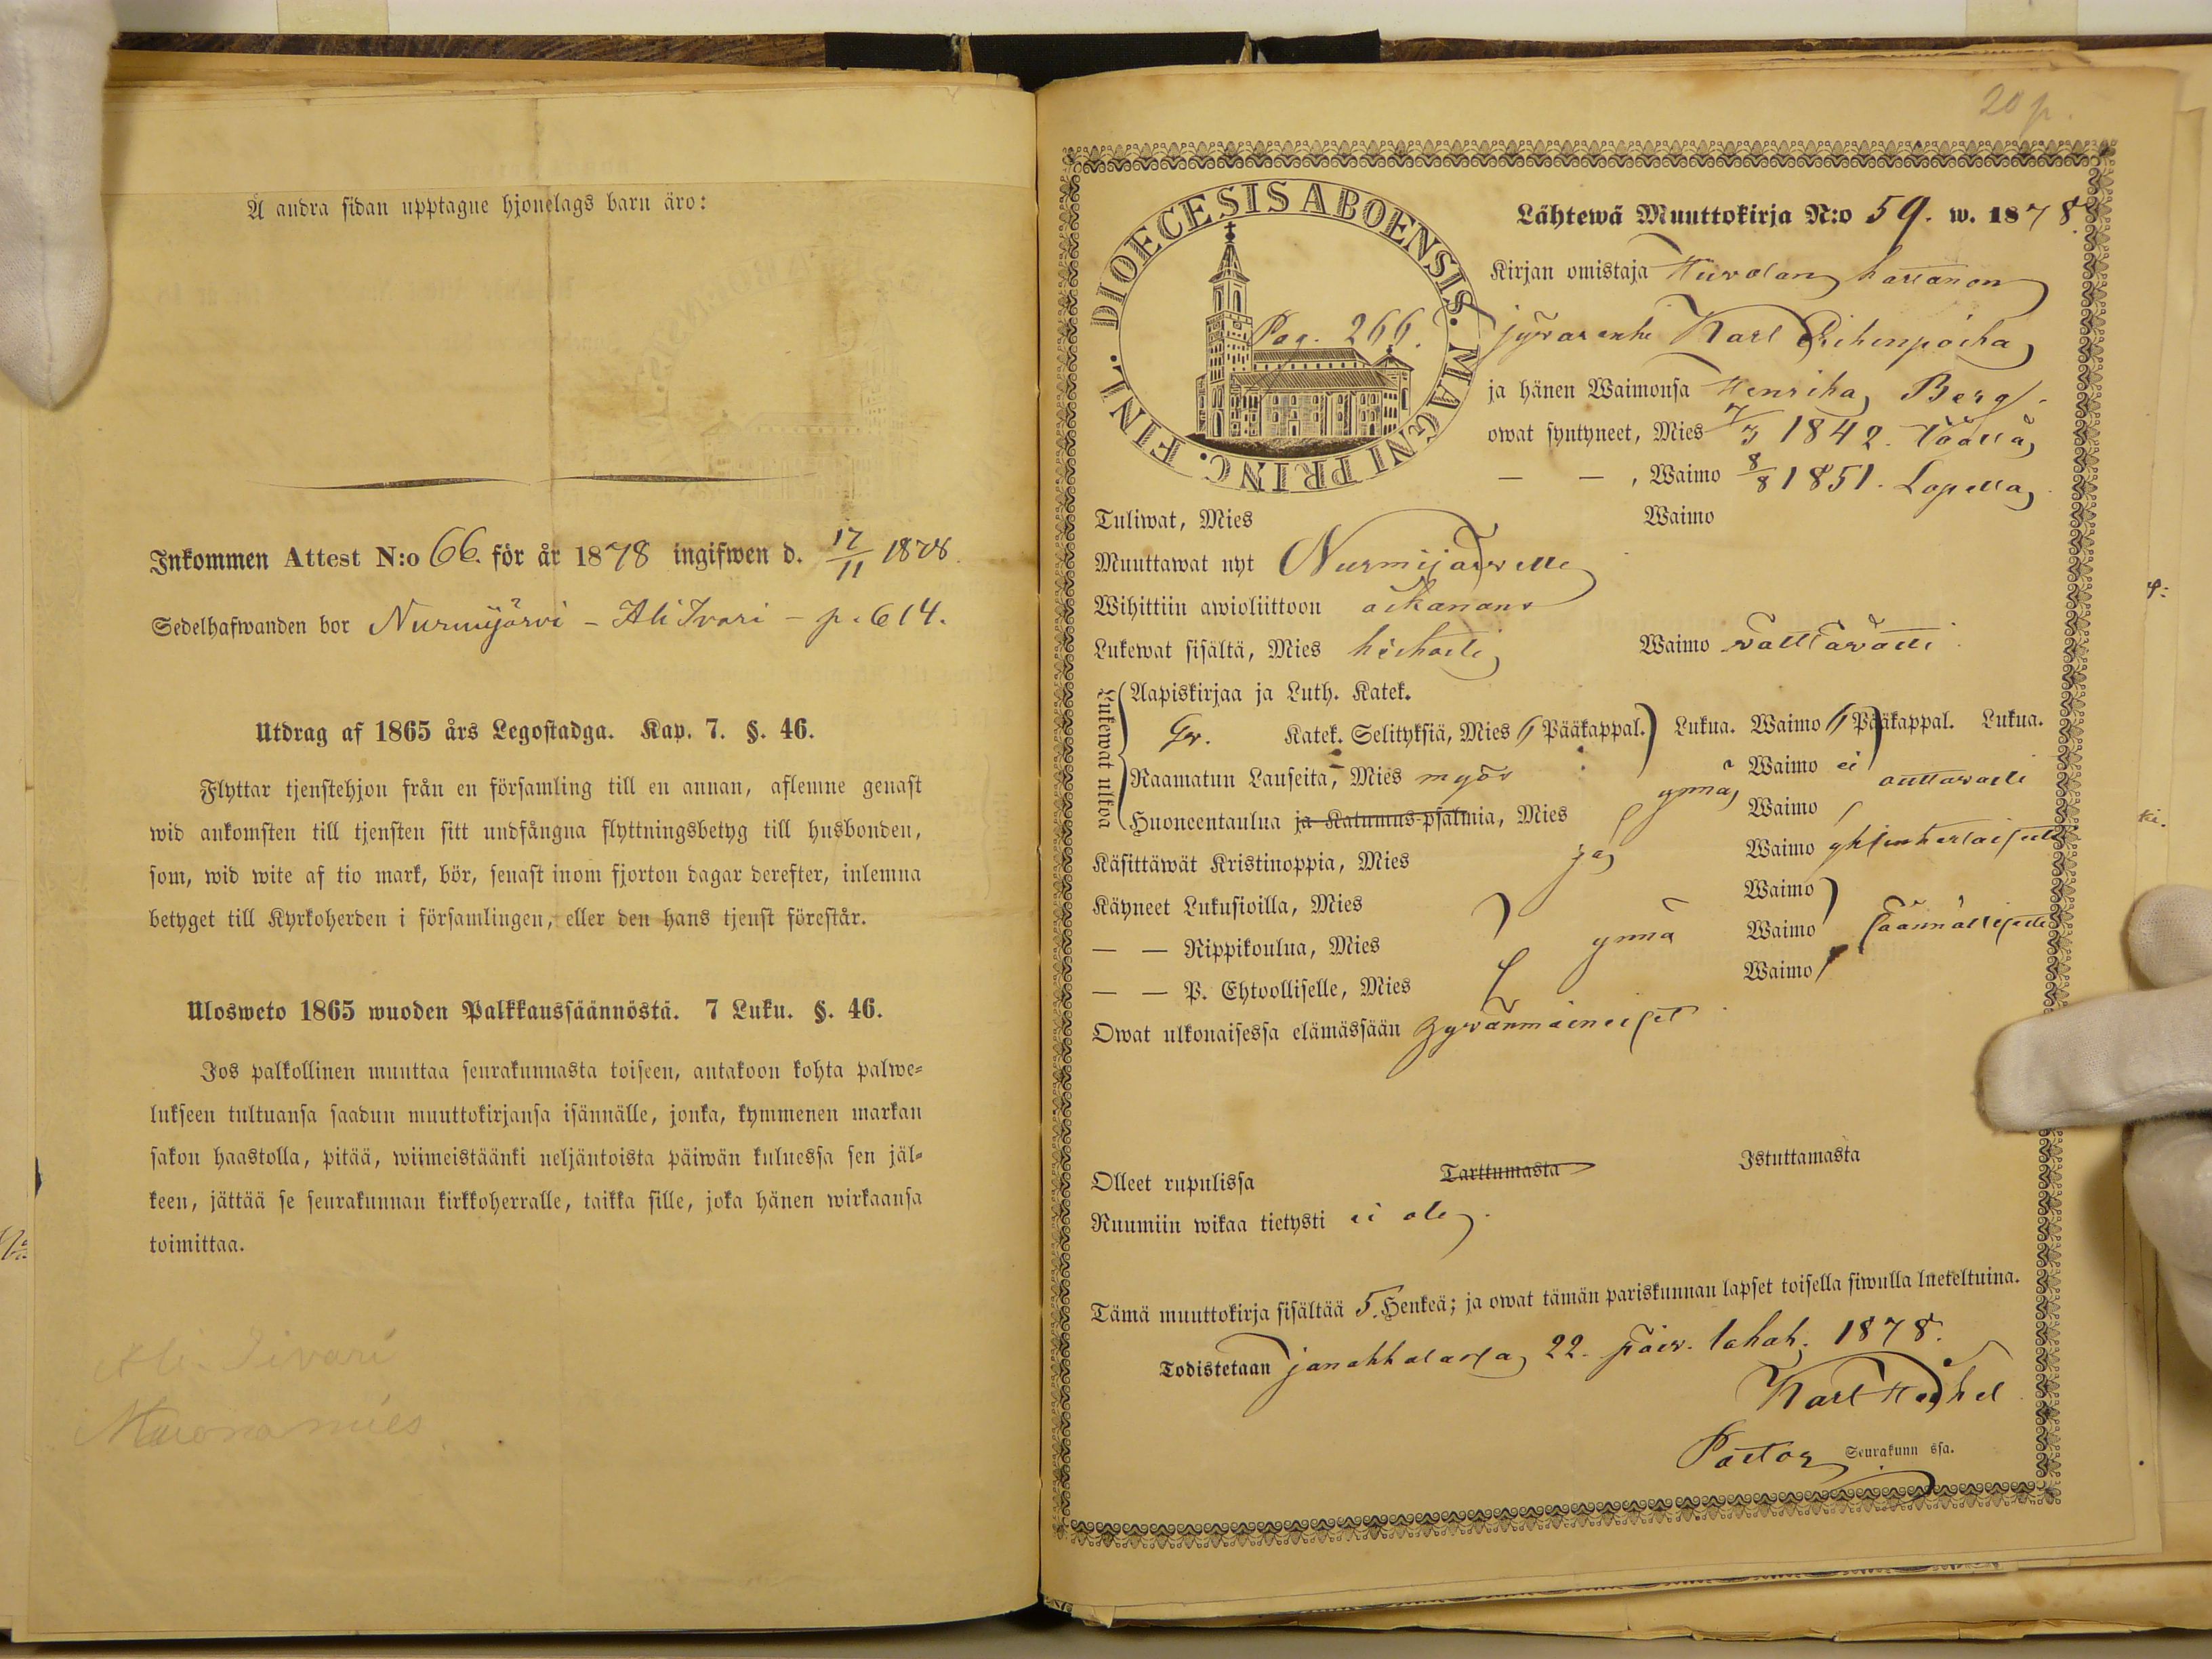 Å andra sidan upptagne hjonelags barn äro:
Inkommen Attest N:o 66. för år 1878 ingifwen d. 17/11 1878.
Sedelhafwanden bor Nurmijärvi - Ali Ivari - p. 614.
Utdrag af 1865 års Legostadga. Kap. 7. §. 46.
Flyttar tjenstehjon från en församling till en annan, aflemne genast
wid ankomsten till tjensten sitt undfångna flyttningsbetyg till husbonden,
som, wid wite af tio mark, bör, senast inom fjorton dagar derefter, inlemna
betyget till Kyrkoherden i församlingen, eller den hans tjenst förestår.
Ulosweto 1865 wuoden Palkkaussäännöstä. 7 Luku. §. 46.
Jos palkollinen muuttaa seurakunnasta toiseen, antakoon kohta palwe-
lukseen tultuansa saadun muuttokirjansa isännälle, jonka, kymmenen markan
sakon haastolla, pitää, wiimeistäänki neljäntoista päiwän kuluessa sen jäl-
keen, jättää se seurakunnan kirkkoherralle, taikka sille, joka hänen wirkaansa
toimittaa.
Ali-Iivari
Muonamies
20 p.
DIOECESIS ABOENSIS. MAGNI PRINC. FINL.
Pag. 266.
Lähtewä Muuttokirja N:o 59. w. 1878.
Kirjan omistaja
Karl
ja hänen Waimonsa Henrika Berg
owat syntyneet, Mies 7/3 1842.
— — , Waimo 8/8 1851. Lopella
Tuliwat, Mies Waimo
Muuttawat nyt Nurmijärvelle
Wihittiin awioliittoon aikanans
Lukewat sisältä, Mies heikosti Waimo välttävästi
Lukewat ulkoa
Aapiskirjaa ja Luth. Katek.
Katek. Selityksiä, Mies Pääkappal. Lukua. Waimo Pääkappal. Lukua.
Raamatun Lauseita, Mies myös Waimo ei
Huoneentaulua ja Katumus-psalmia, Mies ynnä Waimo auttavasti
Käsittäwät Kristinoppia, Mies ja Waimo yksinkertaisesti
Käyneet Lukusioilla, Mies Waimo
— — Rippikoulua, Mies ynnä Waimo säännöllisesti
— — P. Ehtoolliselle, Mies Waimo
Owat ulkonaisessa elämässään hyvänmaineiset
Olleet rupulissa Tarttumasta Istuttamasta
Ruumiin wikaa tietysti ei ole.
Tämä muuttokirja sisältää 5. Henkeä; ja owat tämän pariskunnan lapset toisella siwulla lueteltuina.
Todistetaan Janakkalassa 22. päiv. lokak. 1878.
Karl
Pastor Seurakunn ssa.